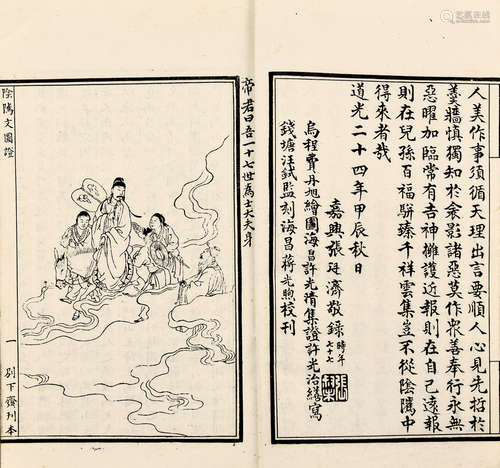 人美作事須循天理出言要順人心見先哲於
羹牆慎獨知於衾影諸惡莫作衆善奉行永無
惡曜加臨常有吉神擁護近報則在自己遠報
則在兒孫百福駢臻千祥雲集豈不從陰隲中
得來者哉
道光二十四年甲辰秋日
嘉興張廷濟敬錄時年七十七
烏程費丹旭繪圖海昌許光清集證許光治繕寫
錢塘汪鉽監刻海昌蔣光煦校刊
帝君曰吾一十七世為士大夫身
陰隲文圖證
一
別下齋刊本